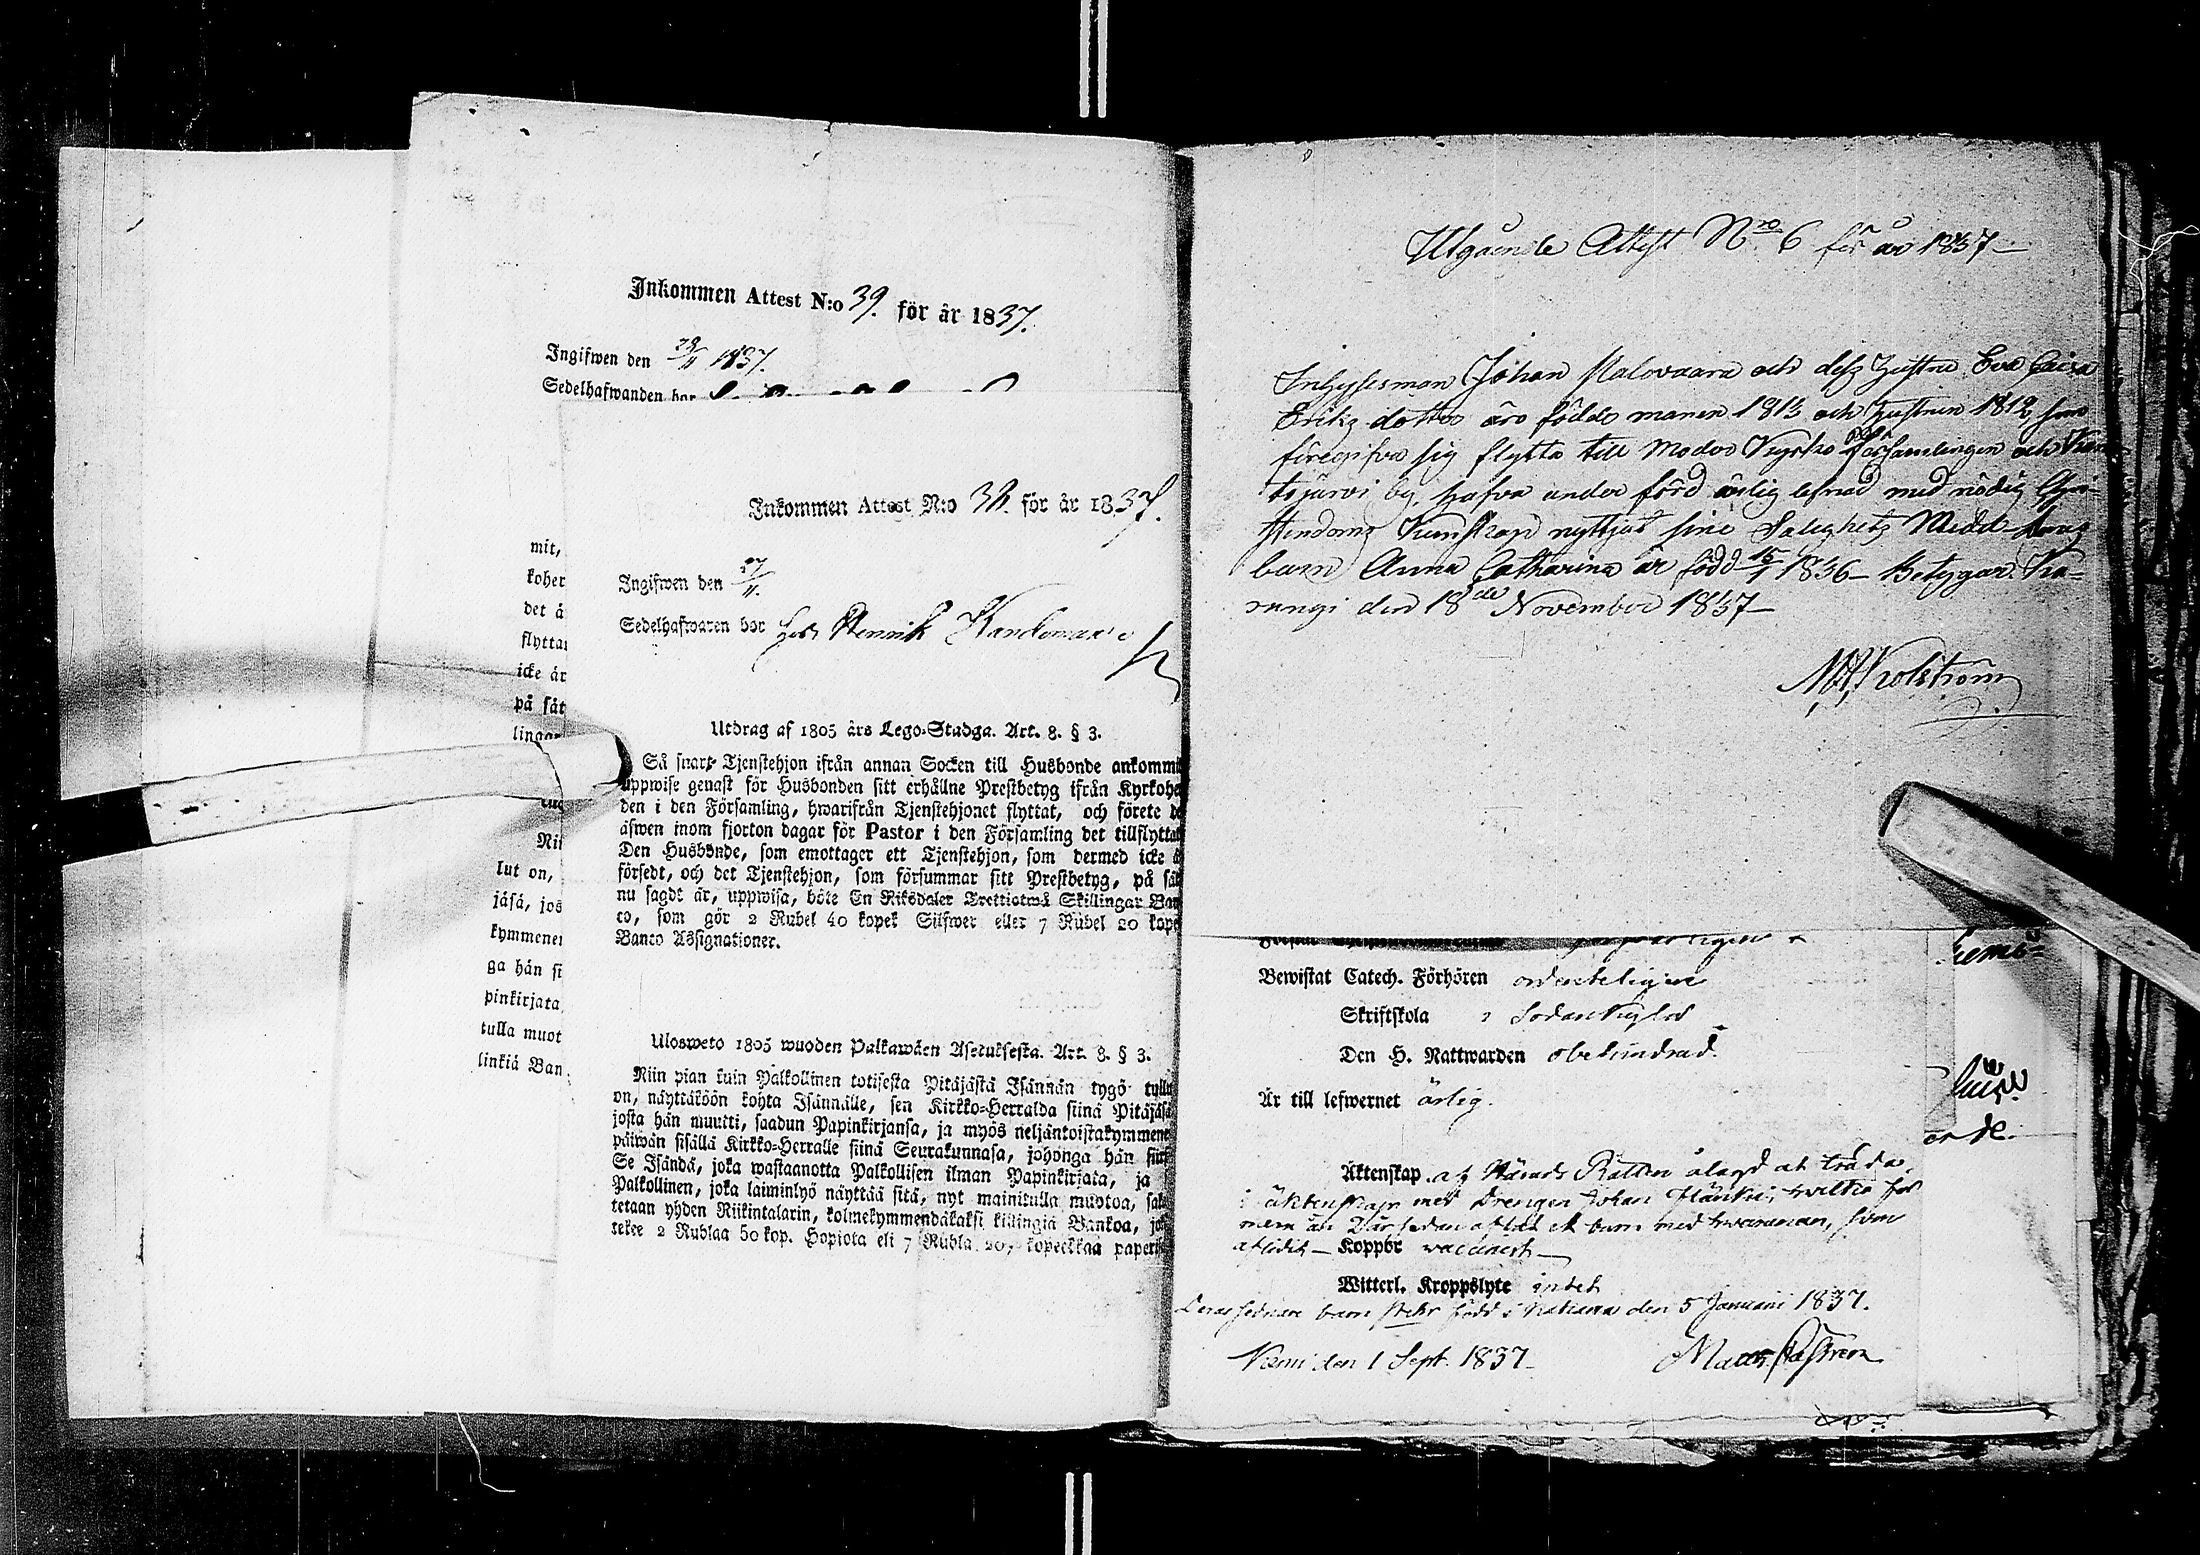 Inkommen Attest N:o 39. för år 1837.
Ingifwen den 28/11 1837.
Sedelhafwanden bor
mit,
koher
det å
flyttat
icke är
på sät
lingar
Nii
lut on,
jäsä, jos
kymmenen
ga hän si
pinkirjata
tulla muot
linkiä Ban
Inkommen Attest N:o 38. för år 1837.
Ingifwen den 27/11.
Sedelhafwaren bor hos Henrik
Utdrag af 1805 års Lego-Stadga. Art. 8. § 3.
Så snart Tjenstehjon ifrån annan Socken till Husbonde ankommi
uppwise genast för Husbonden sitt erhållne Prestbetyg ifrån Kyrkohe
den i den Församling, hwarifrån Tjenstehjonet flyttat, och förete de
äfwen inom fjorton dagar för Pastor i den Församling det tillflyttat
Den Husbonde, som emottager ett Tjenstehjon, som dermed icke ä
försedt, och det Tjenstehjon, som försummar sitt Prestbetyg, på sät
nu sagdt är, uppwisa, böte En Riksdaler Trettiotwå Skillingar Ban
co, som gör 2 Rubel 40 kopek Silfwer eller 7 Rubel 20 kope
Banco Assignationer.
Ulosweto 1805 wuoden Palkawäen Asetuksesta. Art. 8. § 3.
Niin pian kuin Palkollinen toisesta Pitäjästä Isännän tygö tullu
on, näyttäköön kohta Isännälle, sen Kirkko-Herralda siinä Pitäjäsä
josta hän muutti, saadun Papinkirjansa, ja myös neljäntoistakymment
päiwän sisällä Kirkko-Herralle siinä Seurakunnasa, johonga hän siir
Se Isändä, joka wastaanotta Palkollisen ilman Papinkirjata, ja
Palkollinen, joka laiminlyö näyttää sitä, nyt mainitulla muotoa, sak
tetaan yhden Riikintalarin, kolmekymmendäkaksi killingiä Bankoa, jok
tekee 2 Rublaa 50 kop. Hopiota eli 7 Rubla 20 kopeekkaa paperis
Utgående Attest Nro 6 för år 1837
Inhysesman Johan Malovaara och dess hustru Eva Caisa
Eriks dotter äro födde manen 1813 och hustrun 1812, som
föregifva sig flytta till Moder Kyrko församlingen och
järvi by hafva under förd ärlig lefnad med nödig Chri-
stendoms Kunskap nyttjat sine Salighets Medel
barn Anna Catharina är född 15/1 1836 Betygar. Ka-
rungi den 18de November 1837
Bewistat Catech. Förhören ordenteligen
Skriftskola i Sodankylä
Den H. Nattwarden obehindrad.
Är till lefwernet ärlig.
Äktenskap af Härads Rätten ålagd at träda
i äktenskap med Drengen Johan hvilken för
barn med hvarannan, som
aflidit Koppor vaccinerat
Witterl. Kroppslyte intet
barn född i den 5 Januari 1837.
Kemi den 1 Sept. 1837
Matts Castrén
Kemi